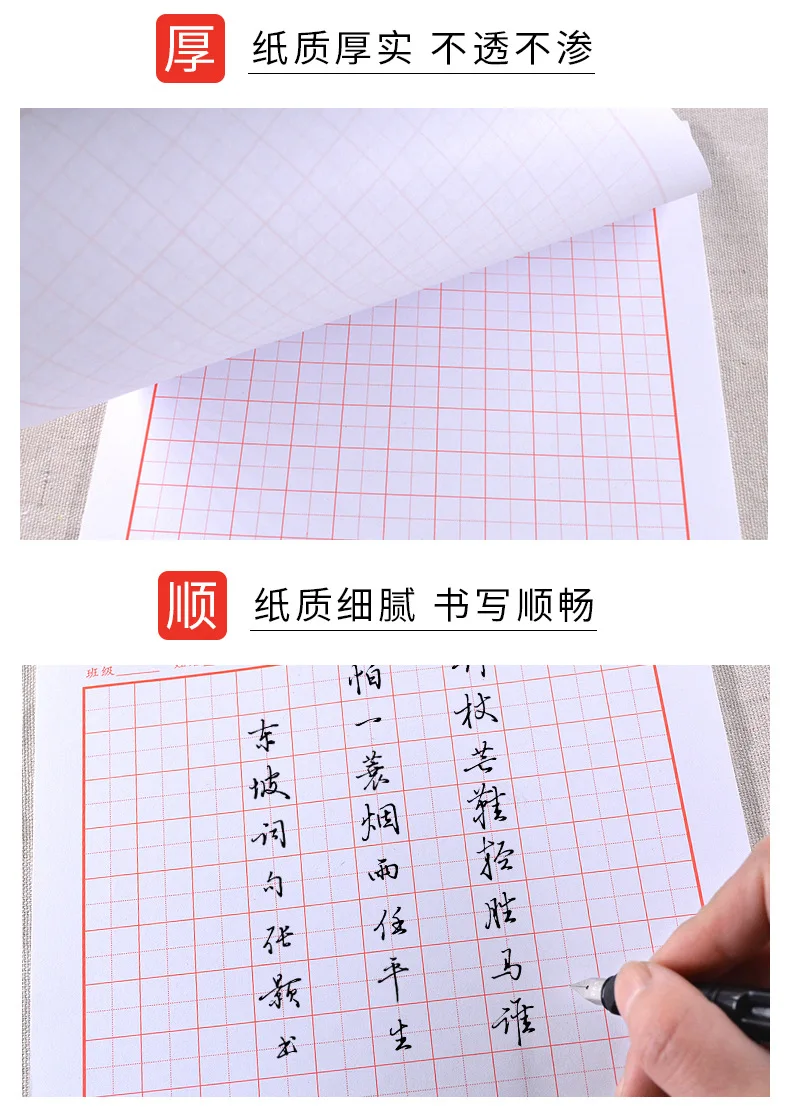 厚 纸质厚实 不透不渗
顺 纸质细腻 书写顺畅
班级
竹杖芒鞋轻胜马谁
怕一蓑烟雨任平生
东坡词句张颢书